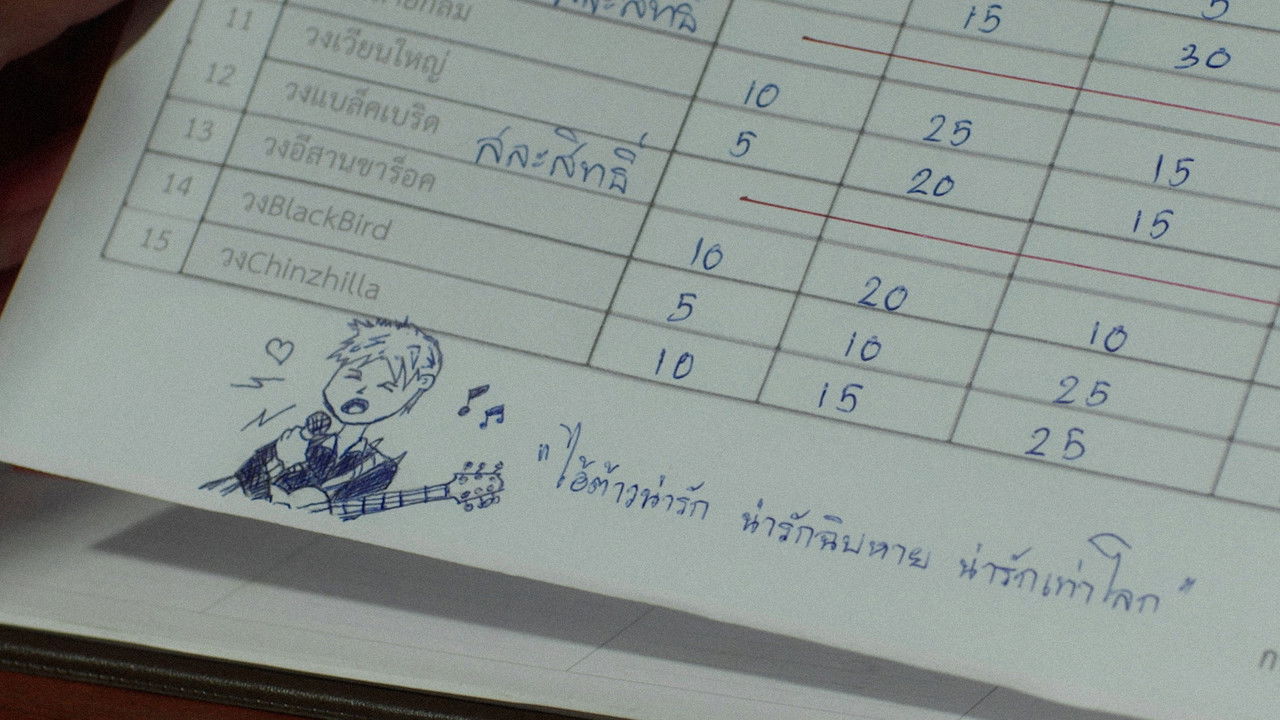 5
15 30
สละสิทธิ์
10 25 15
11 วงเวียนใหญ่ 5 20 15
12 วงแบล็คเบริด สละสิทธิ์
13 วงอีสานซาร็อค 10 20 10
14 วงBlackBird 5 10 25
15 วงChinzhilla 10 15 25
"ไอ้ต้าวน่ารัก น่ารักฉิบหาย น่ารักเท่าโลก"